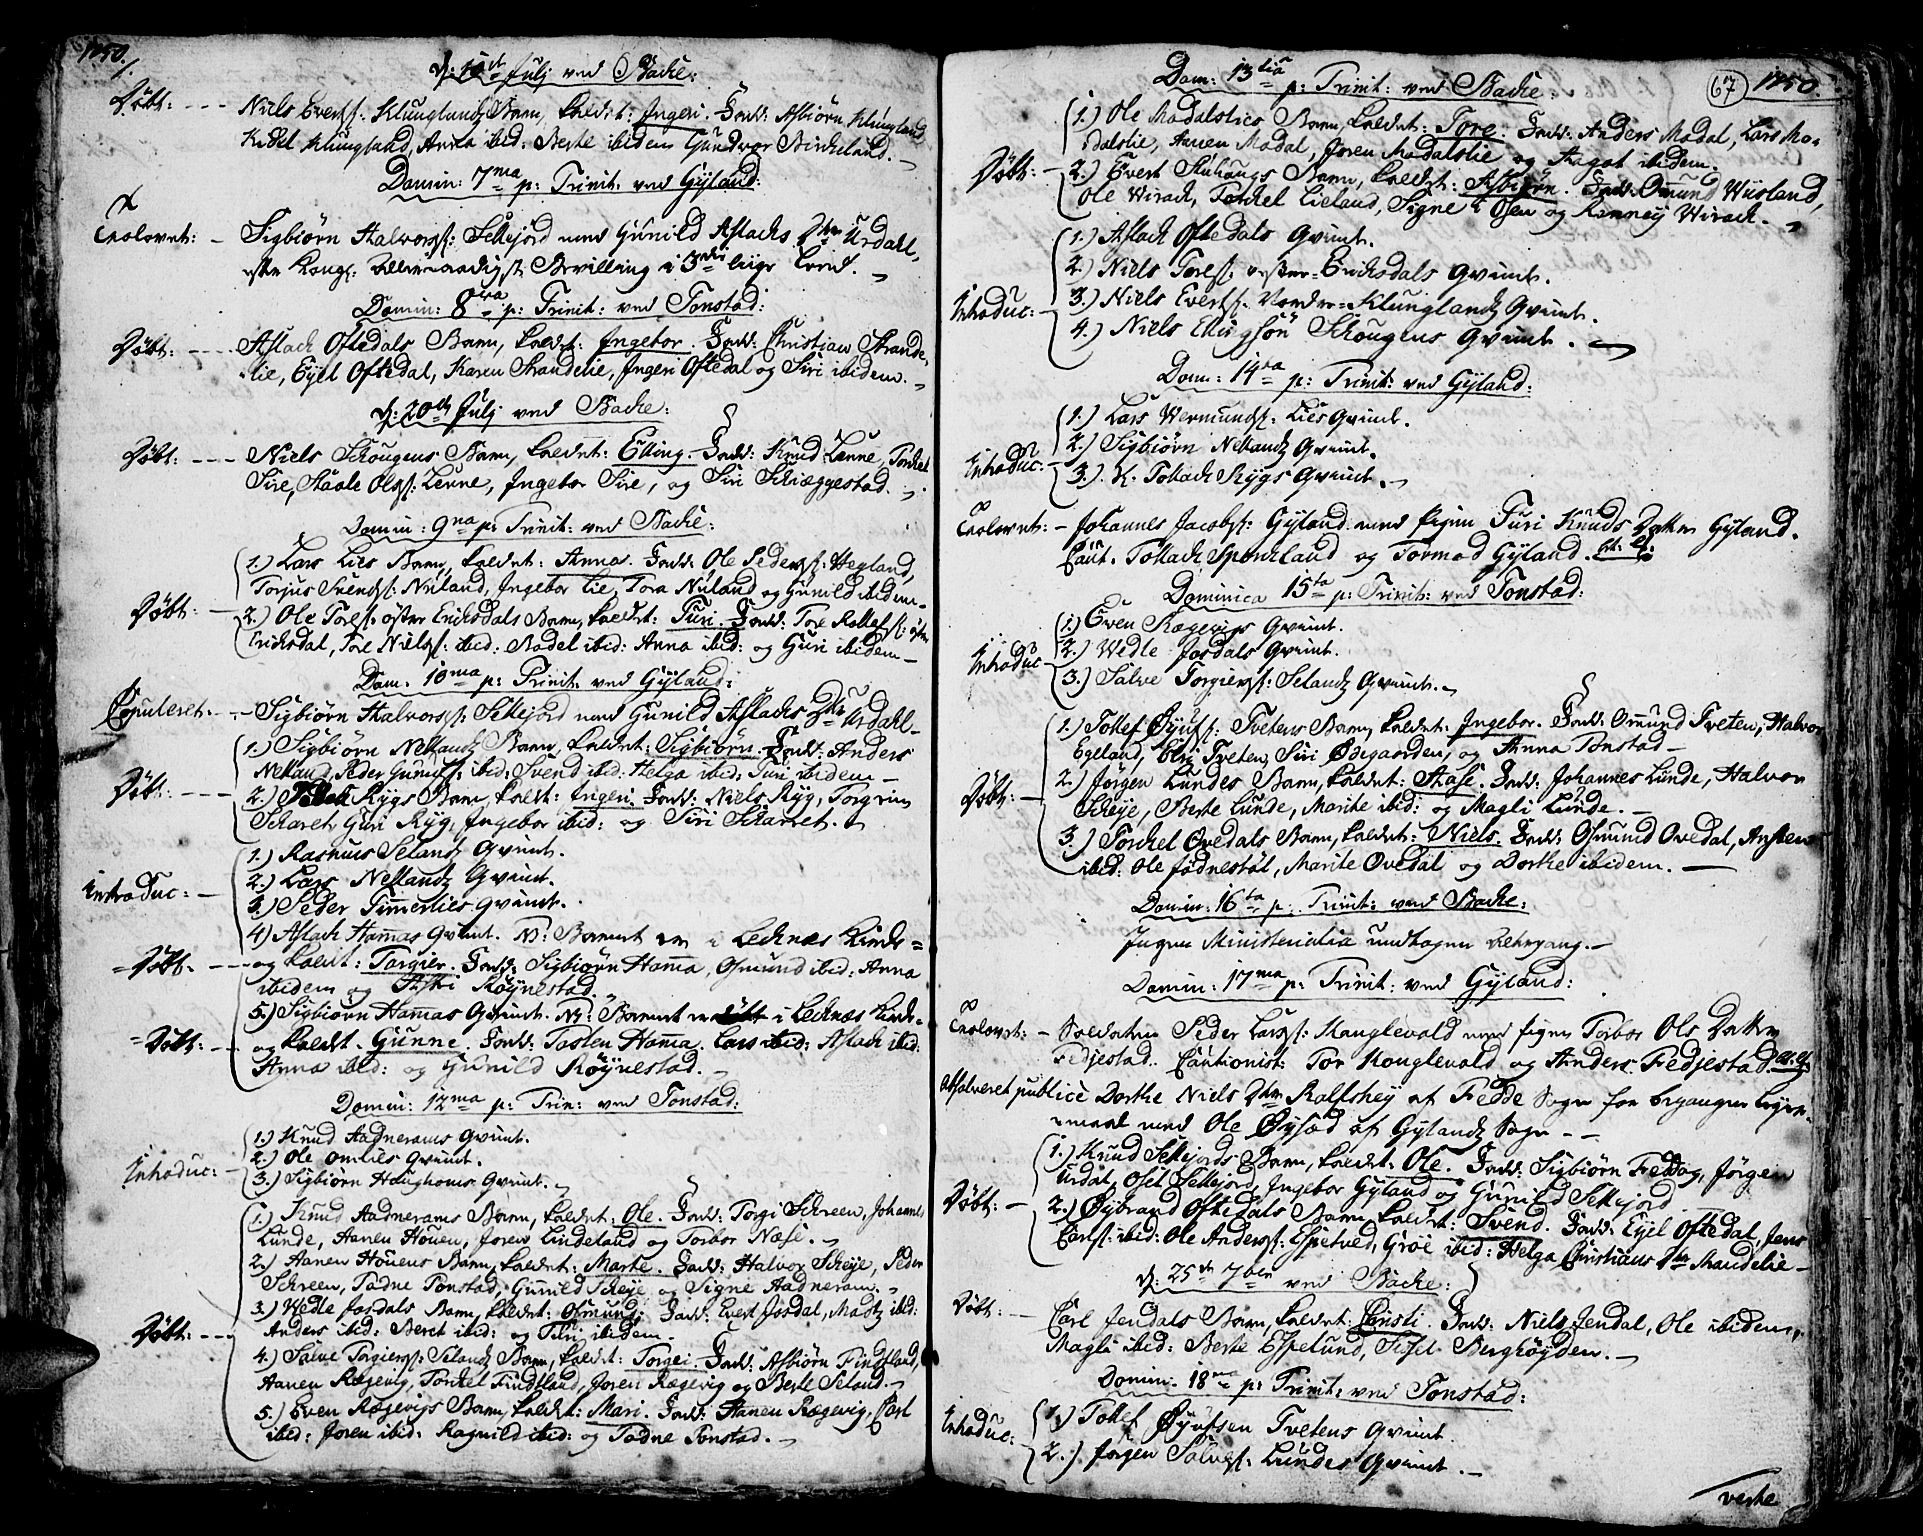 1750.
d: 10de Julj ved Backe:
Døbt: - - - Niels Everts: Klunglands Barn, kaldet: Ingeri. Fadd: Asbiørn Klungland
Kidel Klungland, Anna ibid: Berte ibidem Gundvor Birkeland.
Domin: 7ma p: Trinit: ved Gyland:
Trolovet: - Sigbiørn Halvors: Sellejord med Gunild Aslachs Dtr Urdahl,
efter Kongl: Allernaadigst Bevilling i 3die
Domin: 8va p: Trinit: ved Tonstad:
Døbt: - - - Aslach Oftedals Barn, kaldet: Ingebor. Fadd: Christian Strande-
lie, Eyel Oftedal, Karen Strandelie, Ingeri Oftedal og Siri ibidem.
d: 20de Julj ved Backe:
Døbt: - - - Niels Schougens Barn, kaldet: Elling. Fadd: Knud Lenne, Torkel
Sire, Staale Ols: Lenne, Ingebor Sire, og Siri Schieggestad.
Domin: 9na p: Trinit: ved Backe:
1.) Lars Lies Barn, kaldet: Anna. Fadd: Ole Peders: Hegland,
Torjus Svends: Nuland, Ingebor Lie, Tora Nuland og Gunild ibidem.
Døbt: - 2.) Ole Tores: øster Ericksdals Barn, kaldet: Turi. Fadd: Tore Rollefs: øster
Ericksdal, Tore Niels: ibid: Bodel ibid: Anna ibid: og Guri ibidem
Dom: 10ma p: Trinit: ved Gyland:
Copuleret: - - Sigbiørn Halvors: Sellejord med Gunild Aslachs Dtr Urdahl
1.) Sigbiørn Nellands Barn, kaldet: Sigbiørn. Fadd: Anders
Nelland, Peder Gunufs: ibid: Svend ibid: Helga ibid: Turi ibidem
Døbt: - - - 2.) Tollach Rygs Barn, kaldet: Ingeri. Fadd: Niels Ryg, Torgrim
Scharet, Guri Ryg, Ingebor ibid: og Siri Scharet.
1.) Rasmus Selands Qvinde.
2.) Lars Nellands Qvinde.
Introduc: - 3.) Peder Timmerlies Qvinde.
4.) Aslach Hammas Qvinde. NB: Barnet er i Lechnæs Kirke
Døbt. - - og kaldt: Torgier. Fadd: Sigbiørn Hamma, Osmund ibid: Anna
ibidem og Røynestad.
5.) Sigbiørn Hammas Qvinde. NB: Barnet er døbt i Lechnæs Kirke
Døbt: - - og kaldt. Gunne. Fadd: Tosten Hamma. Lars ibid: Aslach ibid:
Anna ibid: og Gunild Røynestad.
Domin: 12ma p: Trin: ved Tonstad:
1.) Knud Aadnerams Qvinde.
2.) Ole Omlies Qvinde.
Introduc: - 3.) Sigbiørn Houghoms Qvinde.
1.) Knud Aadnerams Barn, kaldet: Ole. Fadd: Torgi Schreen, Johannes
Lunde, Aanen Houen, Joren Lindeland og Torbor Næse.
2.) Aanen Houens Barn, kaldet: Marte. Fadd: Halvor Scheje, Peder
Schreen, Tadne Tonstad, Gunild Scheje og Signe Aadneram.
3.) Vedle Josdals Barn, kaldet: Osmund. Fadd: Evert Josdal, Mads ibid:
Døbt: - - - Anders ibid: Beret ibid: og ibidem.
4.) Salve Torgiers: Selands Barn, kaldet: Torgei. Fadd: Asbiørn Findtland,
Aanen Rægevig, Torkel Findtland, Joren Rægevig og Berte Seland.
5.) Even Rægevigs Barn, kaldet: Mari. Fadd: Aanen Rægevig, Carl
ibid: Joren ibid: Ragnild ibid: og Tadne Tonstad.
67 1750.
Dom: 13tia p: Trinit: ved Backe:
1.) Ole Modalslies Barn, kaldet: Tore. Fadd: Anders Modal, Lars Mo-
dalslie, Aanen Modal, Joren Modalslie og Aagot ibidem.
Døbt: - 2.) Evert Barn, kaldet: Asbiørn. Fadd: Omund Wusland,
Ole Wirack, Torkel Lieland, Signe Osen og Ranney Wirack.
1.) Aslach Oftedals Qvinde.
2.) Niels Tores: vester Ericksdals Qvinde.
Introduc: - 3.) Niels Everts: Nordre-Klunglands Qvinde.
4.) Niels Ellingsøn Schougens Qvinde.
Dom: 14ta p: Trinit: ved Gyland:
1.) Lars Wermunds: Lies Qvinde.
2.) Sigbiørn Nellands Qvinde.
Introduc: - 3.) K. Tollach Rygs Qvinde.
Trolovet: - Johannes Jacobs: Gyland med Pigen Turi Knuds Datter Gyland.
Caut. Tollach Sponeland og Tormod Gyland.
Dominica 15ta p: Trinit: ved Tonstad:
1.) Even Rægevigs Qvinde.
Introduc 2.) Wedle Josdals Qvinde.
3.) Salve Torgiers: Selands Qvinde.
1.) Tollef Øyufs: Tvetens Barn, kaldet: Ingebor. Fadd: Omund Tveten, Halvor
Egeland, Elri Tveten, Siri Ødegaarden, og Anna Tonstad
Døbt: - 2.) Jørgen Lundes Barn, kaldet: Aase. Fadd: Johannes Lunde, Halvor
Scheje, Berte Lunde, Marite ibid: og Magli Lunde.
3.) Torkel Ovedals Barn, kaldet: Niels. Fadd: Osmund Ovedal, Ansten
ibid: Ole Jødnestøl, Marite Ovedal og Dorthe ibidem.
Domin: 16ta p: Trinit: ved Backe:
Ingen Ministerialia undtagen Altergang.
Domin: 17ma p: Trinit: ved Gyland:
Trolovet: - Soldaten Peder Lars: Houglevold med Pigen Torbor Ols Datter
Fedjestad. Cautionist: Tor Houglevold og Anders Fedjestad
Absolveret publicè Dorthe Niels Dtr Ralfshey af Fedde Sogn for begangen Leyer-
maal med Ole Øysæd af Gylands Sogn - -
1.) Knud Sellejords Barn, kaldet: Ole. Fadd: Sigbiørn Feddog, Jørgen
Urdal, Osel Sellejord, Ingebor Gyland og Gunild Sellejord
Døbt: - 2.) Øybrand Oftedals Barn, kaldet: Svend. Fadd: Eyel Oftedal, Jens
Carls: ibid: Ole Anders: Espetved, Groe ibid: Helga Christians Dtr Strandelie
d: 25de 7ber ved Backe:
Døbt: - Carl Jendals Barn, kaldet: Kirsti. Fadd: Niels Jendal, Ole ibidem,
Magli ibid: Berte Espelund, Sisel Berghøyden.
Domin. 18va p: Trinit: ved Tonstad:
Introduc: 1.) Tollef Øyufsen Tvetens Qvinde.
2.) Jørgen Salves: Lundes Qvinde.
verte